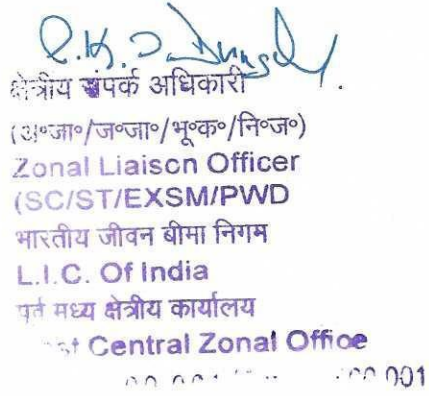 क्षेत्रीय संपर्क अधिकारी
(अ॰जा॰/ज॰जा॰/भू॰क॰/नि॰ज॰)
Zonal Liaison Officer
(SC/ST/EXSM/PWD
भारतीय जीवन बीमा निगम
L.I.C. Of India
मध्य क्षेत्रीय कार्यालय
Central Zonal Office
001